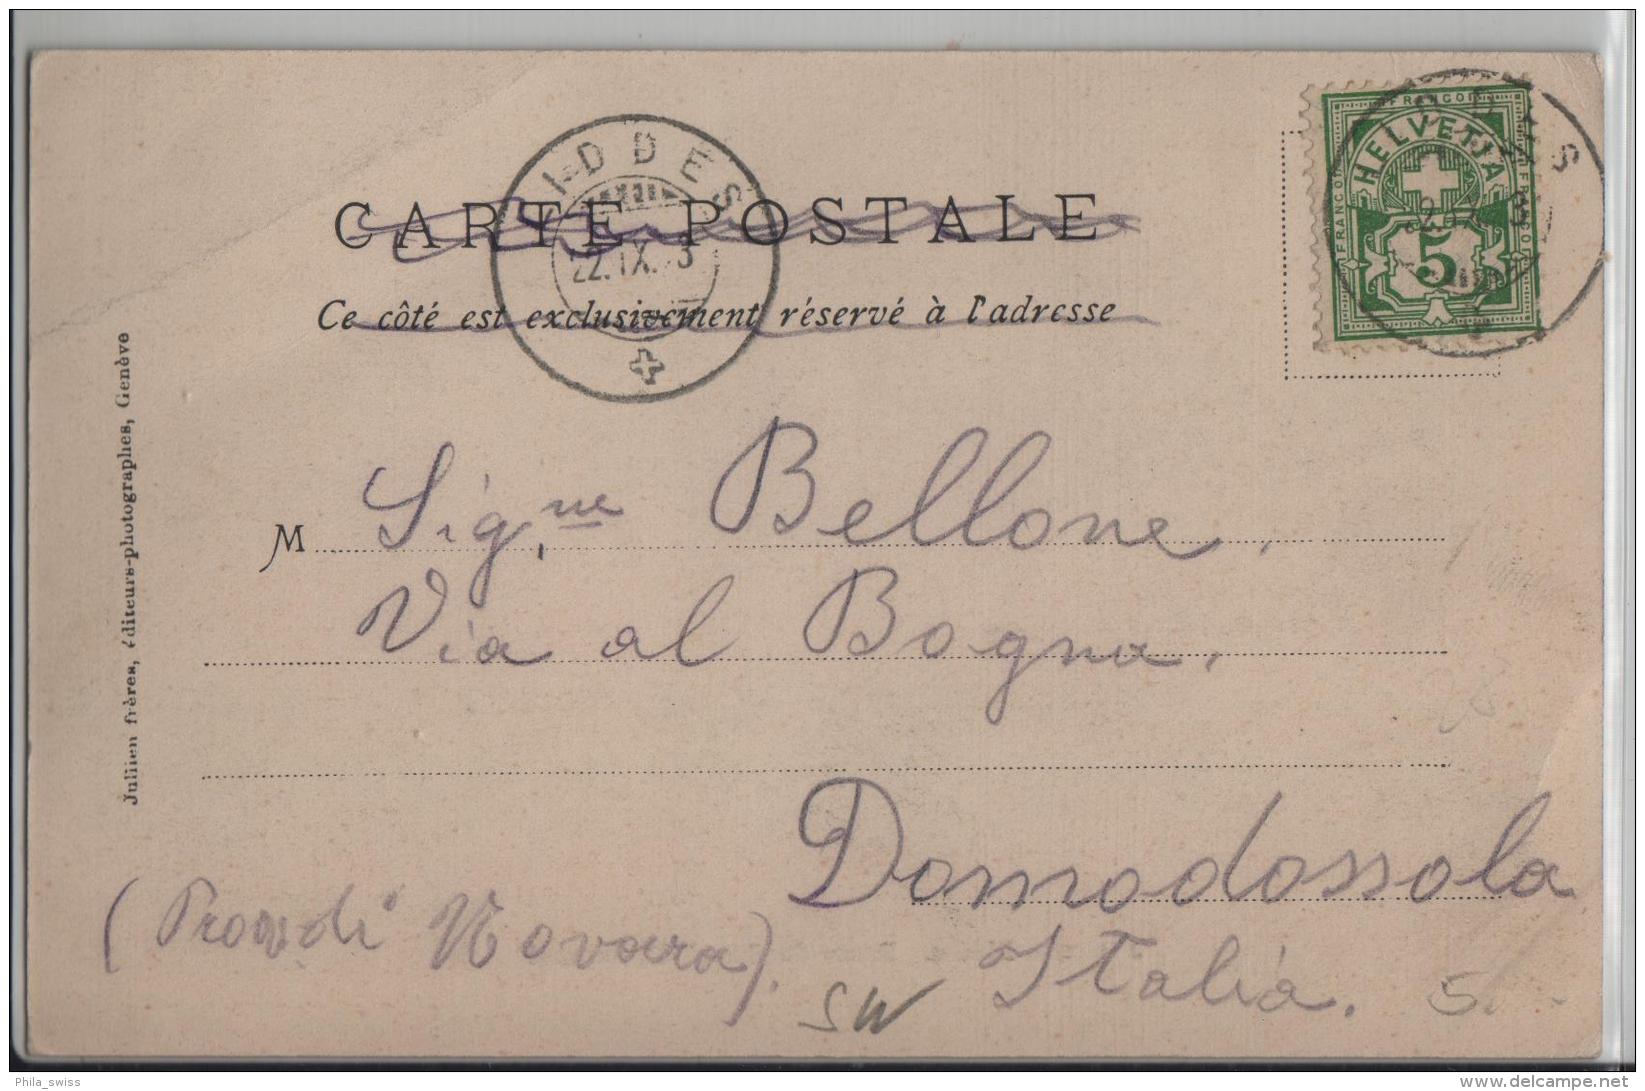 CARTE POSTALE
Ce côté est exclusivement réservé à l'adresse
IDDES
22.IX. 3
FRANCO
HELVETIA
FRANCO
FRANCO
5
DDES
M Sig.ne Bellone,
Via al Bogna,
Domodossola
(Prov. di Novara).
Italia.
SW
5.
Jullien frères, éditeurs-photographes, Genève
Phila_swiss
www.delcampe.net